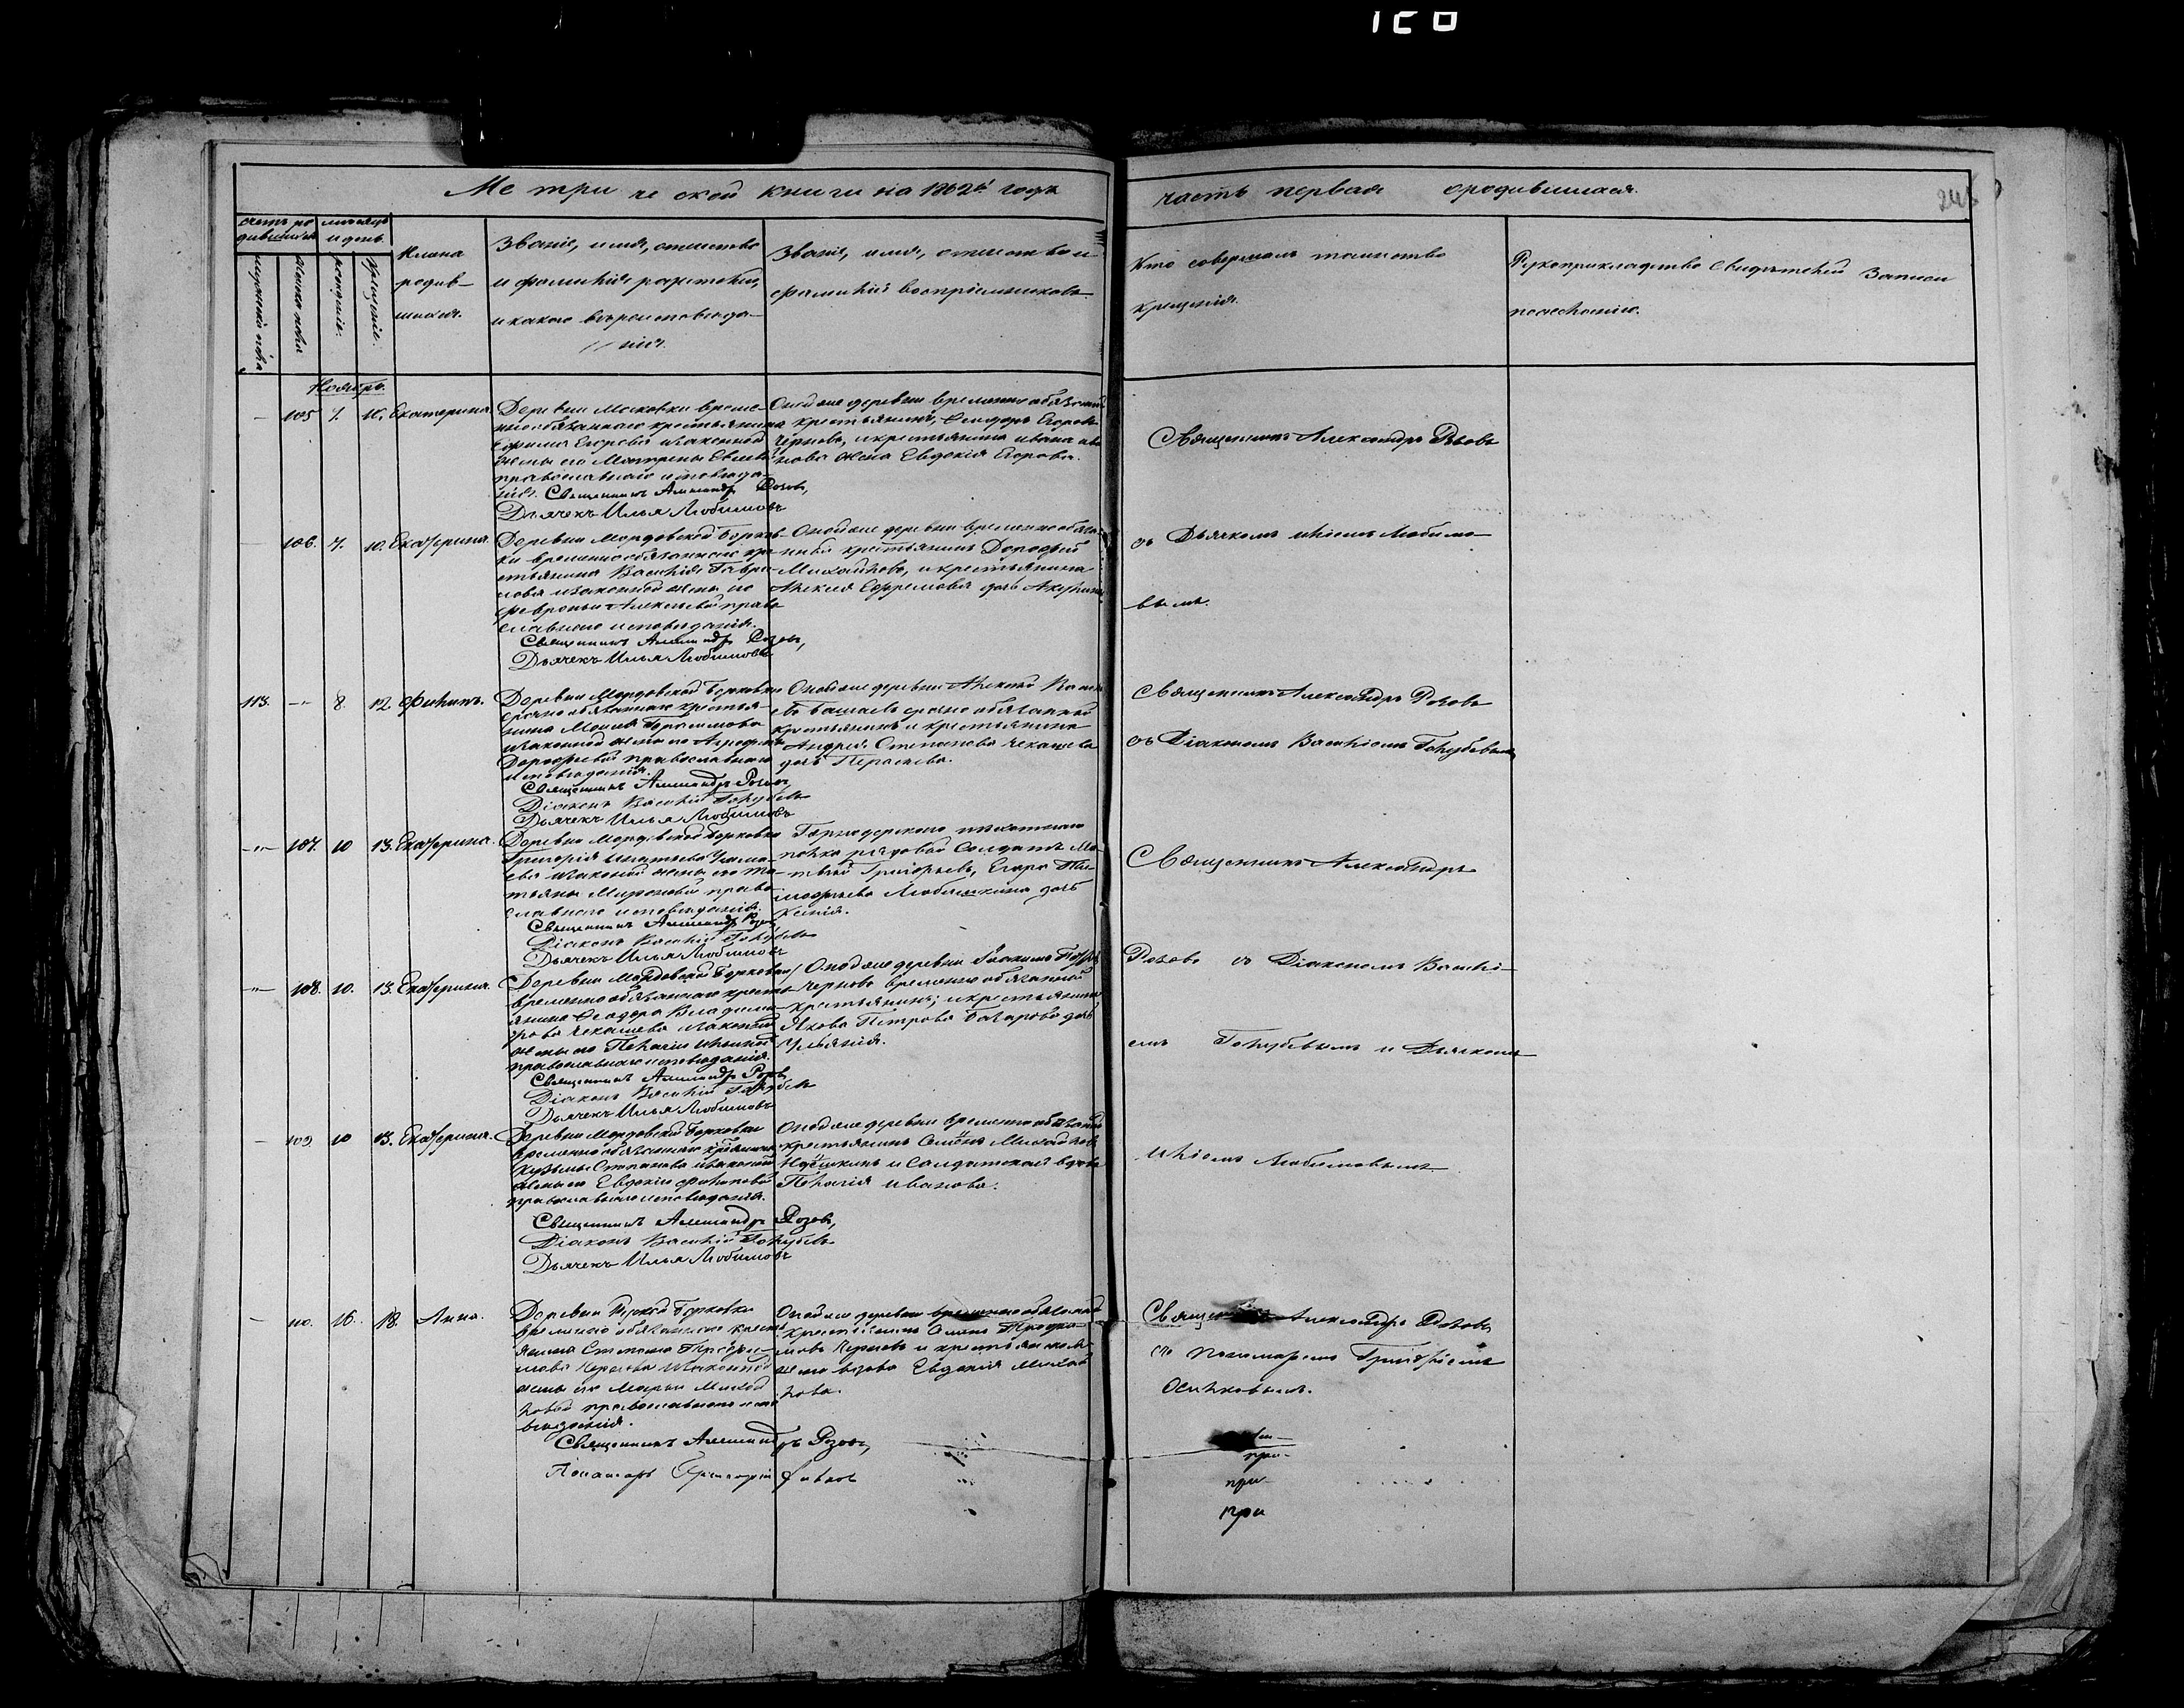 Метрической книги на 1862й годъ
часть первая о родившихся.
счетъ ро-
дившихся
мужеска пола
женска пола
месяцъ
и день
рожденiе.
крещенiе.
Имена
родив-
шихся.
Званiе, имя, отчество
и фамилiя родителей,
и какого вероисповеда-
нiя.
Званiе, имя, отчество и
фамилiя воспрiемниковъ
Кто совершалъ таинство
крещенiя.
Рукоприкладство свидетелей записи
по желанiю.
Ноябрь.
105 7. 10. Екатерина.
Деревни Маковки време-
нно обязаннаго крестьянина
Ефима Егорова и законной
жены его Матрены
православнаго исповеда-
нiя.
Священникъ Александръ Розовъ,
Дьячекъ Илья Любимовъ
Оной же деревни временно обязанный
крестьянинъ, Феодоръ Егоровъ
Черновъ, и крестьянина Ивана Ива-
нова жена Евдокiя Егорова.
Священникъ Александръ Розовъ
106. 7. 10. Екатерина.
Деревни Мордовской Борков-
ки временно обязаннаго кре-
стьянина Василiя Гаври-
лова и законной жены его
Февроньи Алексеевой право-
славнаго исповеданiя.
Священникъ Александръ Розовъ,
Дьячекъ Илья Любимовъ
Оной же деревни временно обяза-
нный крестьянинъ Дорофей
Михайловъ, и крестьянина
Алексея Ефремова дочь Акулина
съ Дьячкомъ Илiею Любимо-
вымъ.
113. -"- 8. 12 Филипъ.
Деревни Мордовской Борковки
срочно обязаннаго крестья-
нина Моисея Герасимова
и законной жены его Агрефены
Дорофеевой православнаго
исповеданiя.
Священникъ Александръ Розовъ,
Дiаконъ Василiй Голубевъ
Дьячекъ Илья Любимовъ
Оной же деревни Алексей
Башаевъ срочно обязанный
крестьянинъ и крестьянина
Андрея Степанова Чекашева
дочь Парасковья.
Священникъ Александръ Розовъ
съ Дiакономъ Василiемъ Голубевымъ
-"- 107. 10 13. Екатерина.
Деревни Мордовской Борковки
Григорiя Игнатьева
и законной жены его Та-
тьяны Мироновой право-
славнаго исповеданiя.
Священникъ Александръ Розовъ
Дiаконъ Василiй Голубевъ
Дьячекъ Илья Любимовъ
пехотнаго
полка рядовой солдатъ Ма-
твей Григорьевъ, Егора Ти-
мофеева дочь
Ксенiя.
Священникъ Александръ
-"- 108. 10. 13. Екатерина.
Деревни Мордовской Борковки
временно обязаннаго кресть-
янина Феодора Владими-
рова Чекашева и законной
жены его Пелагiи Ильиной
православнаго исповеданiя.
Священникъ Александръ Розовъ
Дiаконъ Василiй Голубевъ
Дьячекъ Илья Любимовъ
Оной же деревни
Черновъ временно обязанный
крестьянинъ; и крестьянина
Якова Петрова Базарова дочь
Ульянiя.
Розовъ съ Дiакономъ Василi-
емъ Голубевымъ и Дьячкомъ
- 109 10 13. Екатерина.
Деревни Мордовской Борковки
временно обязаннаго крестьянина
Кузьмы Степанова и законной
жены его Евдокiи Филиповой
православнаго исповеданiя.
Священникъ Александръ Розовъ,
Дiаконъ Василiй Голубевъ
Дьячекъ Илья Любимовъ
Оной же деревни временно обязанный
крестьянинъ Семёнъ Михайловъ
и солдатская вдова
Пелагiя Иванова.
Илiемъ Любимовымъ
- 110. 16. 18. Анна.
Деревни Русской Борковки
временно обязаннаго кресть-
янина Степана Трофи-
мова Чернова и законной
жены его Марьи Михай-
ловой православнаго испо-
веданiя.
Священникъ Александръ Розовъ,
Пономарь Григорiй
Оной же деревни временно обязанный
крестьянинъ Трофи-
мовъ Черновъ и крестьянская
жена вдова Евдокiя Михай-
лова.
Священникъ Александръ Розовъ
съ Пономаремъ Григорiемъ
Осиповымъ.
при-
при-
при